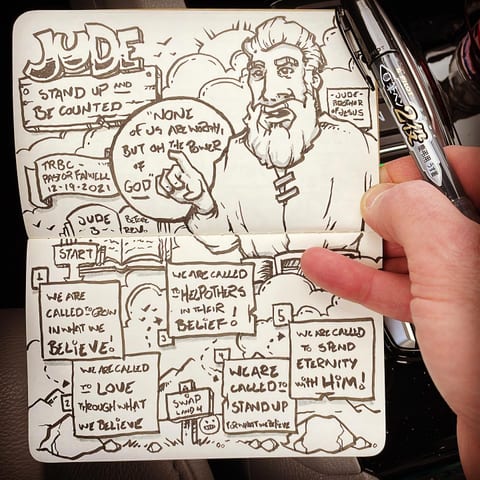 JUDE
STAND UP AND
BE COUNTED
"NONE
OF US ARE WORTHY,
BUT OH THE POWER
OF
GOD"
-JUDE-
BROTHER
OF JESUS
TRBC-
PASTOR FARWELL
12-19-2021
JUDE
3
BEFORE
REV.
START
1
WE ARE
CALLED TO GROW
IN WHAT WE
BELIEVE.
2
WE ARE CALLED
TO LOVE
THROUGH WHAT
WE BELIEVE
3
WE ARE CALLED
TO HELP OTHERS
IN THEIR
BELIEF!
4
WE ARE
CALLED TO
STAND UP
FOR WHAT WE BELIEVE
5
WE ARE CALLED
TO SPEND
ETERNITY
WITH HIM!
SWAP
LAND